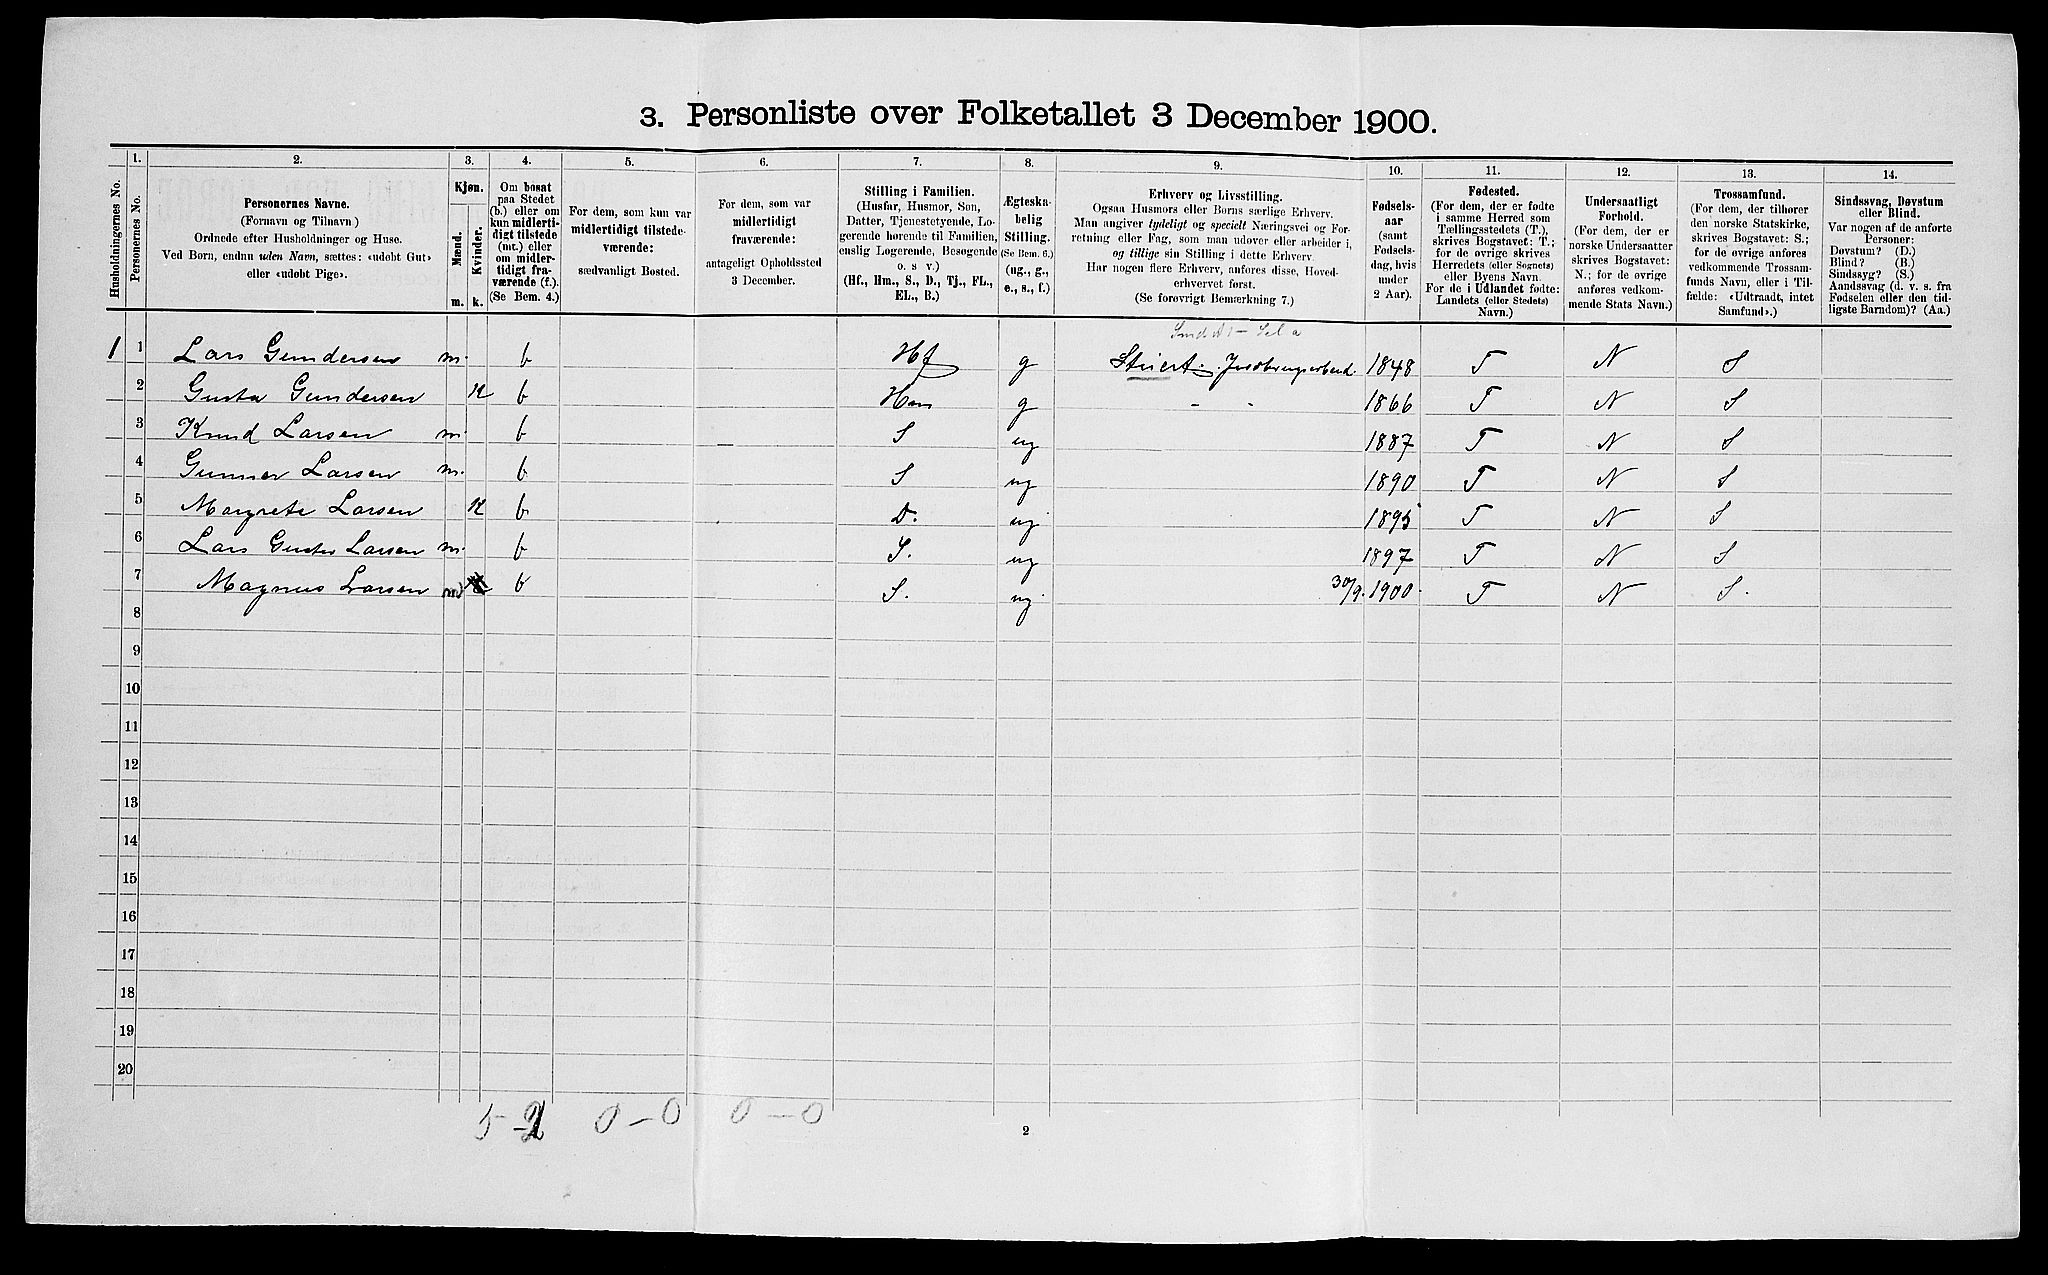 3. Personliste over Folketallet 3 December 1900.
1. 2. 3. 4. 5. 6. 7. 8. 9. 10. 11. 12. 13. 14.
Husholdningernes No.
Personernes No.
Personernes Navne.
(Fornavn og Tilnavn)
Ordnede efter Husholdninger og Huse.
Ved Børn, endnu uden Navn, sættes: «udøbt Gut»
eller «udøbt Pige».
Kjøn.
Mænd.
Kvinder.
m. k.
Om bosat
paa Stedet
(b.) eller om
kun midlerti-
digt tilstede
(mt.) eller
om midler-
tidigt fra-
værende (f.).
(Se Bem. 4.)
For dem, som kun var
midlertidigt tilstede-
værende:
sædvanligt Bosted.
For dem, som var
midlertidigt
fraværende:
antageligt Opholdssted
3 December.
Stilling i Familien.
(Husfar, Husmor, Søn,
Datter, Tjenestetyende, Lo-
gerende hørende til Familien,
enslig Logerende, Besøgende
o. s v.)
(Hf., Hm., S., D., Tj., FL.,
EL., B.)
Ægteska-
belig
Stilling.
(Se Bem. 6.)
(ug., g.,
e., s., f.)
Erhverv og Livsstilling.
Ogsaa Husmors eller Børns særlige Erhverv.
Man angiver tydeligt og specielt Næringsvei og For-
retning eller Fag, som man udøver eller arbeider i,
og tillige sin Stilling i dette Erhverv.
Har nogen flere Erhverv, anføres disse, Hoved-
erhvervet først.
(Se forøvrigt Bemærkning 7.)
Fødsels-
aar
(samt
Fødsels-
dag, hvis
under
2 Aar).
Fødested.
(For dem, der er fødte
i samme Herred som
Tællingsstedets (T.),
skrives Bogstavet: T.;
for de øvrige skrives
Herredets (eller Sognets)
eller Byens Navn.
For de i Udlandet fødte:
Landets (eller Stedets)
Navn.)
Undersaatligt
Forhold.
(For dem, der er
norske Undersaatter
skrives Bogstavet:
N.; for de øvrige
anføres vedkom-
mende Stats Navn.)
Trossamfund.
(For dem, der tilhører
den norske Statskirke,
skrives Bogstavet: S.;
for de øvrige anføres
vedkommende Trossam-
funds Navn, eller i Til-
fælde: «Udtraadt, intet
Samfund».)
Sindssvag, Døvstum
eller Blind.
Var nogen af de anførte
Personer:
Døvstum? (D.)
Blind? (B.)
Sindssyg? (S.)
Aandssvag (d. v. s. fra
Fødselen eller den tid-
ligste Barndom)? (Aa.)
1 1 Lars Gundersen m. b Hf g 1848 T N S
2 Gusta Gundersen K b Hm g - - 1866 T N S
3 Knud Larsen m. b S ug 1887 T N S
4 Gunner Larsen m. b S ug 1890 T N S
5 Margrete Larsen K b D. ug 1895 T N S
6 Lars Gustav Larsen m. b S. ug 1897 T N S
7 Magnus Larsen m b S. ug. 30/9. 1900. T N S.
8
9
10
11
12
13
14
15
16
17
18
19
20
5-2 0-0 0-0
2